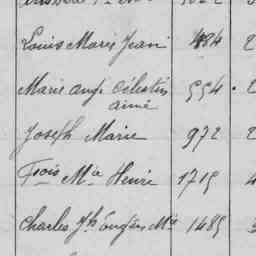 Louis Marie Jean 484 2
Marie ange Célestin 554 2
aimé
Joseph Marie 972 2
Fçois Mie Henri 1715 4
Charles Jh Eugène Mie 1485 3